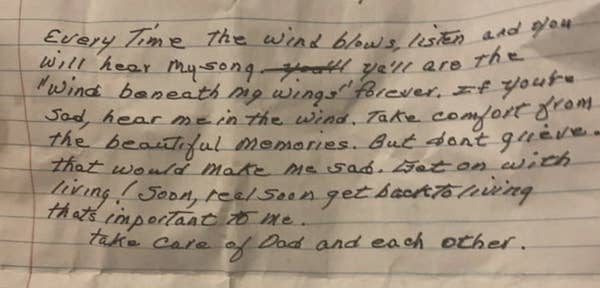 Every Time the wind blows, listen and you
will hear my song ya'll are the
"wind beneath my wings" forever. If you're
Sad, hear me in the wind. Take comfort from
the beautiful memories. But dont grieve.
that would make me sad. Get on with
living! Soon, real soon get back to living
thats important to me.
take care of Dad and each other.